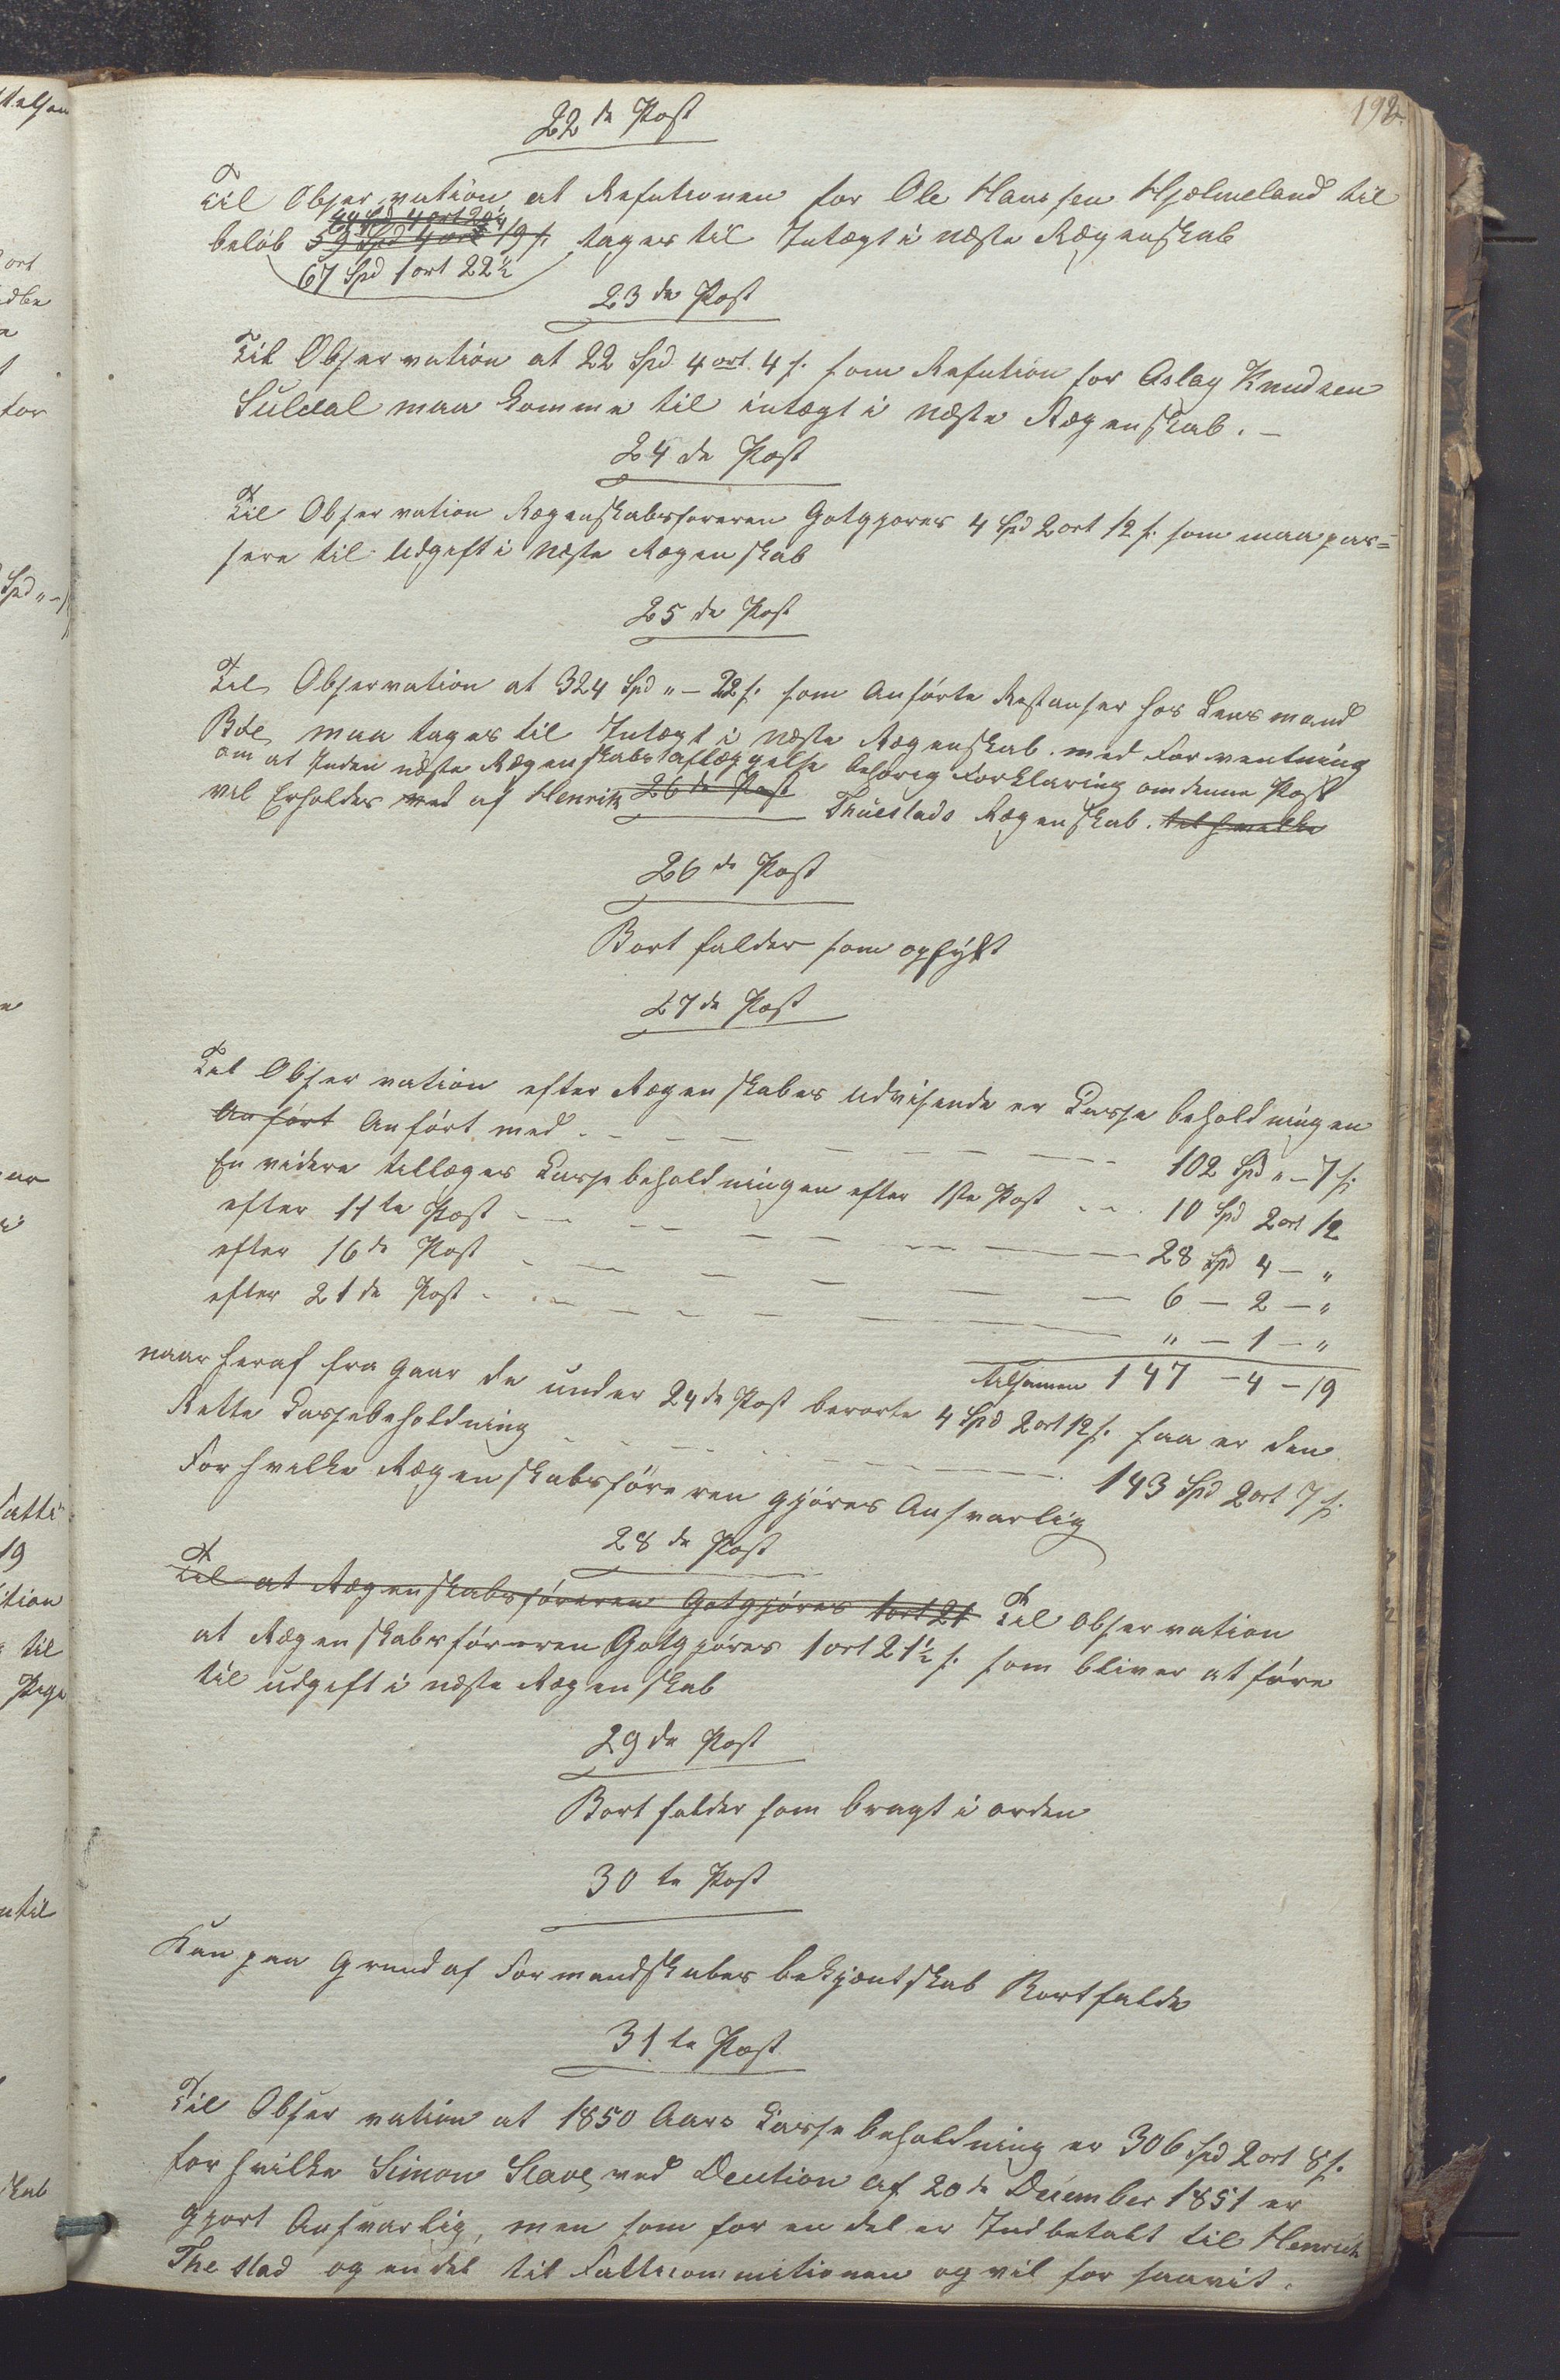 192.
22de Post
Til Observation at Refutionen for Ole Hanssen Hjelmeland til
64 Spd 4 ort 20½
beløb 59 Spd 4 ort 19 s. tages til Intægt i næste Regenskab
67 Spd 1 ort 22½
23de Post
Til Observation at 22 Spd 4 ort. 4 s. som Refution for Aslag Knudsen
Suldal maa komme til intægt i næste Regenskab. –
24de Post
Til Observation Regenskabsføreren Gotgjøres 4 Spd 2 ort 12 s. som maa pas=
sere til Udgift i næste Regenskab
25de Post
Til Observation at 324 Spd " – 22 s. som Anførte Restanser hos Lensmand
Bøe maa tages til Intægt i næste Regenskab. med Forventning
om at Inden næste Regenskabsaflæggelse behørig Forklaring om denne Post
vil Erholdes ved af Henrik 26de Post Thuestads Regenskab. til hvilke
26de Post
Bortfalder som opfyldt
27de Post
Til Observation efter Regenskabes udvisende er Casse beholdningen
Anført Anført med – – – – – – 102 Spd " – 7 s.
En videre tillæges Cassebeholdningen efter 1ste Post – – . 10 Spd 2 ort 12
efter 11te Post – – – – – – – 28 Spd 4 – "
efter 16de Post – – – – – – – 6 – 2 – "
efter 21de Post – – – – – – – " – 1 – "
tilsamen 147 – 4 – 19
naar heraf fra gaar de under 24de Post berørte 4 Spd 2 ort 12 s. saa er den
Rette Cassebeholdning – – – – – 143 Spd 2 ort 7 s.
For hvilke Regenskabsføreren gjøres Ansvarlig
28de Post
Til at Regenskabsføreren Gotgjøres 1 ort 21 Til Observation
at Regenskabsføreren Gotgjøres 1 ort 21½ s. som bliver at føre
til udgift i næste Regenskab
29de Post
Bortfalder som bragt i orden
30te Post
Kan paa Grund af Formandskabes bekjentskab Bortfalde
31te Post
Til Observation at 1850 Aars Casse beholdning er 306 Spd 2 ort 8 s.
for hvilke Simon Slave ved Decition af 20de December 1851 er
gjort Ansvarlig, men som for en del er Indbetalt til Henrich
Thestad og en del til Fatticommitionen og vil for saavit.